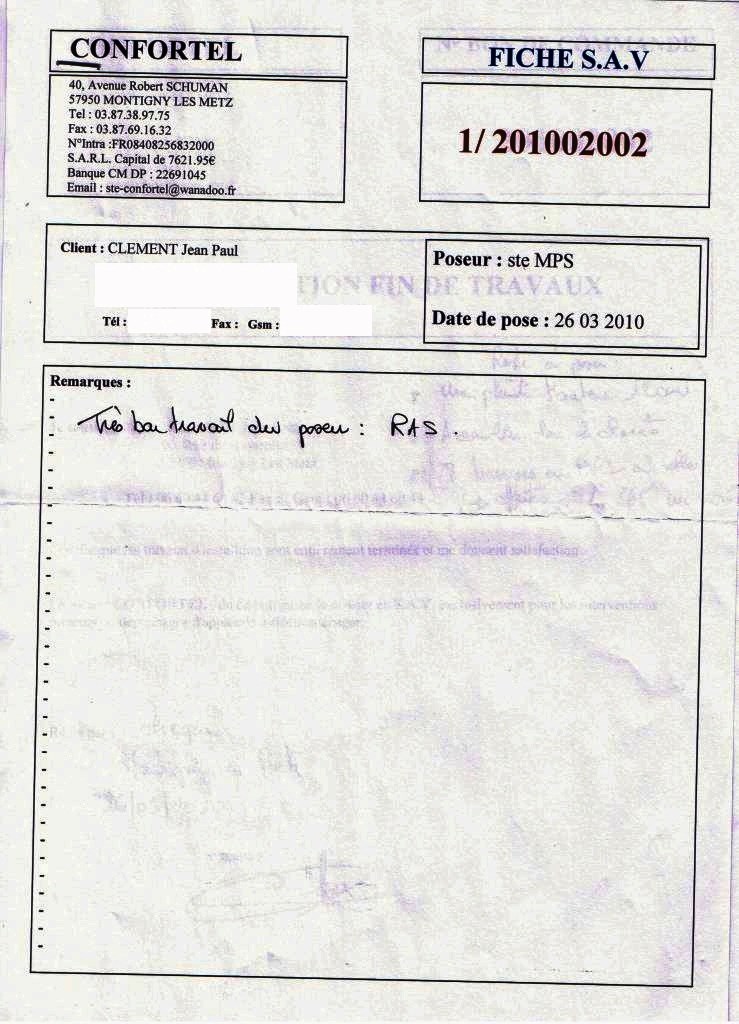 CONFORTEL
40, Avenue Robert SCHUMAN
57950 MONTIGNY LES METZ
Tel : 03.87.38.97.75
Fax : 03.87.69.16.32
N°Intra :FR08408256832000
S.A.R.L. Capital de 7621.95€
Banque CM DP : 22691045
Email : ste-confortel@wanadoo.fr
FICHE S.A.V
1/ 201002002
Client : CLEMENT Jean Paul
Tél :
Fax : Gsm :
Poseur : ste MPS
Date de pose : 26 03 2010
TION FIN DE TRAVAUX
Remarques :
Très bon travail des poseur : RAS.